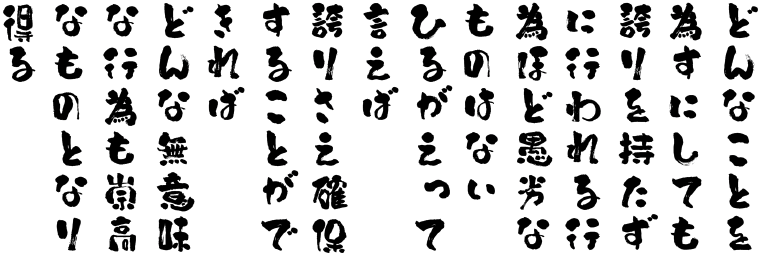 どんなことを
為すにしても
誇りを持たず
に行われる行
為ほど愚劣な
ものはない
ひるがえって
言えば
誇りさえ確保
することがで
きれば
どんな無意味
な行為も崇高
なものとなり
得る